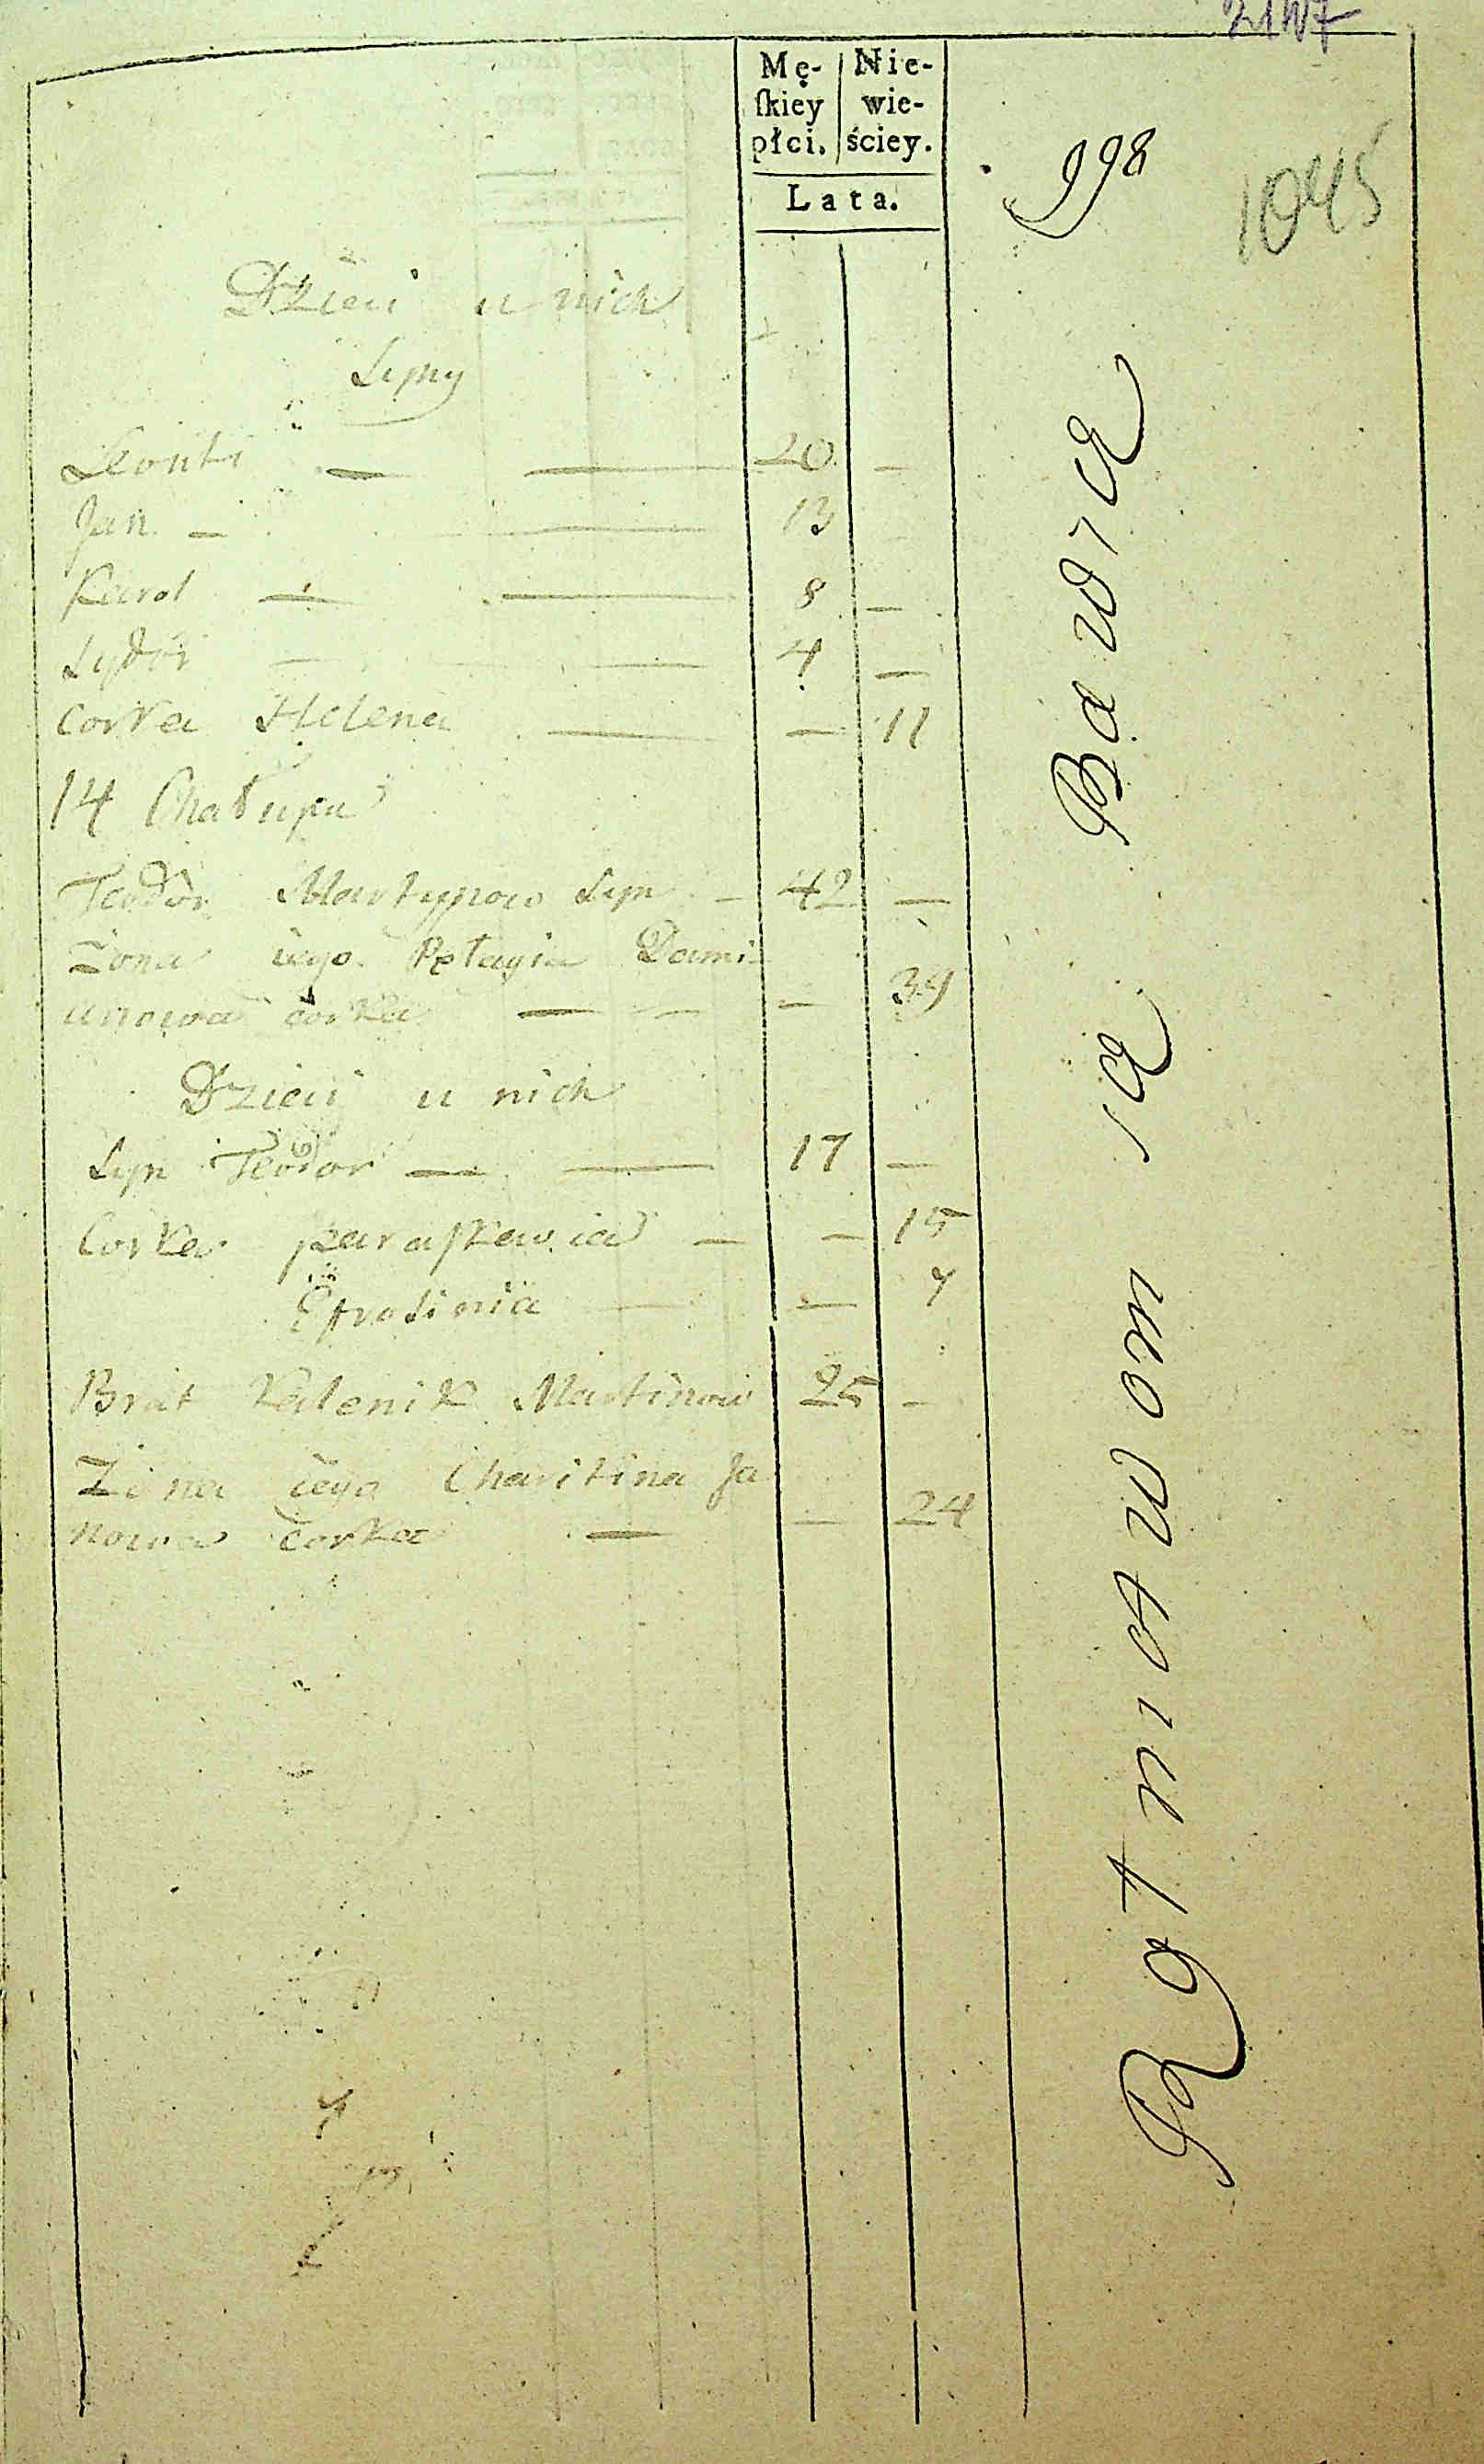 Mę- Nie-
ſkiey wie-
płci. ściey.
Lata.
998
1045
Dzieci u nich
Syny
Leonti — — 20 —
Jan — — 13
Karol — — 8 —
Sydor — — 4 —
Corka Helena — — 11
14 Chałupa
Teodor Martynow Syn — 42 —
Zona iego Pełagia Dami
anowa corka — — — 39
Dzieci u nich
Syn Teodor — — 17 —
Corka paraſkewia — — 15
Efrosinia — — 7
Brat Kalenik Martinow 25 —
Zona iego Charitina Ja
nowa corka — — 24